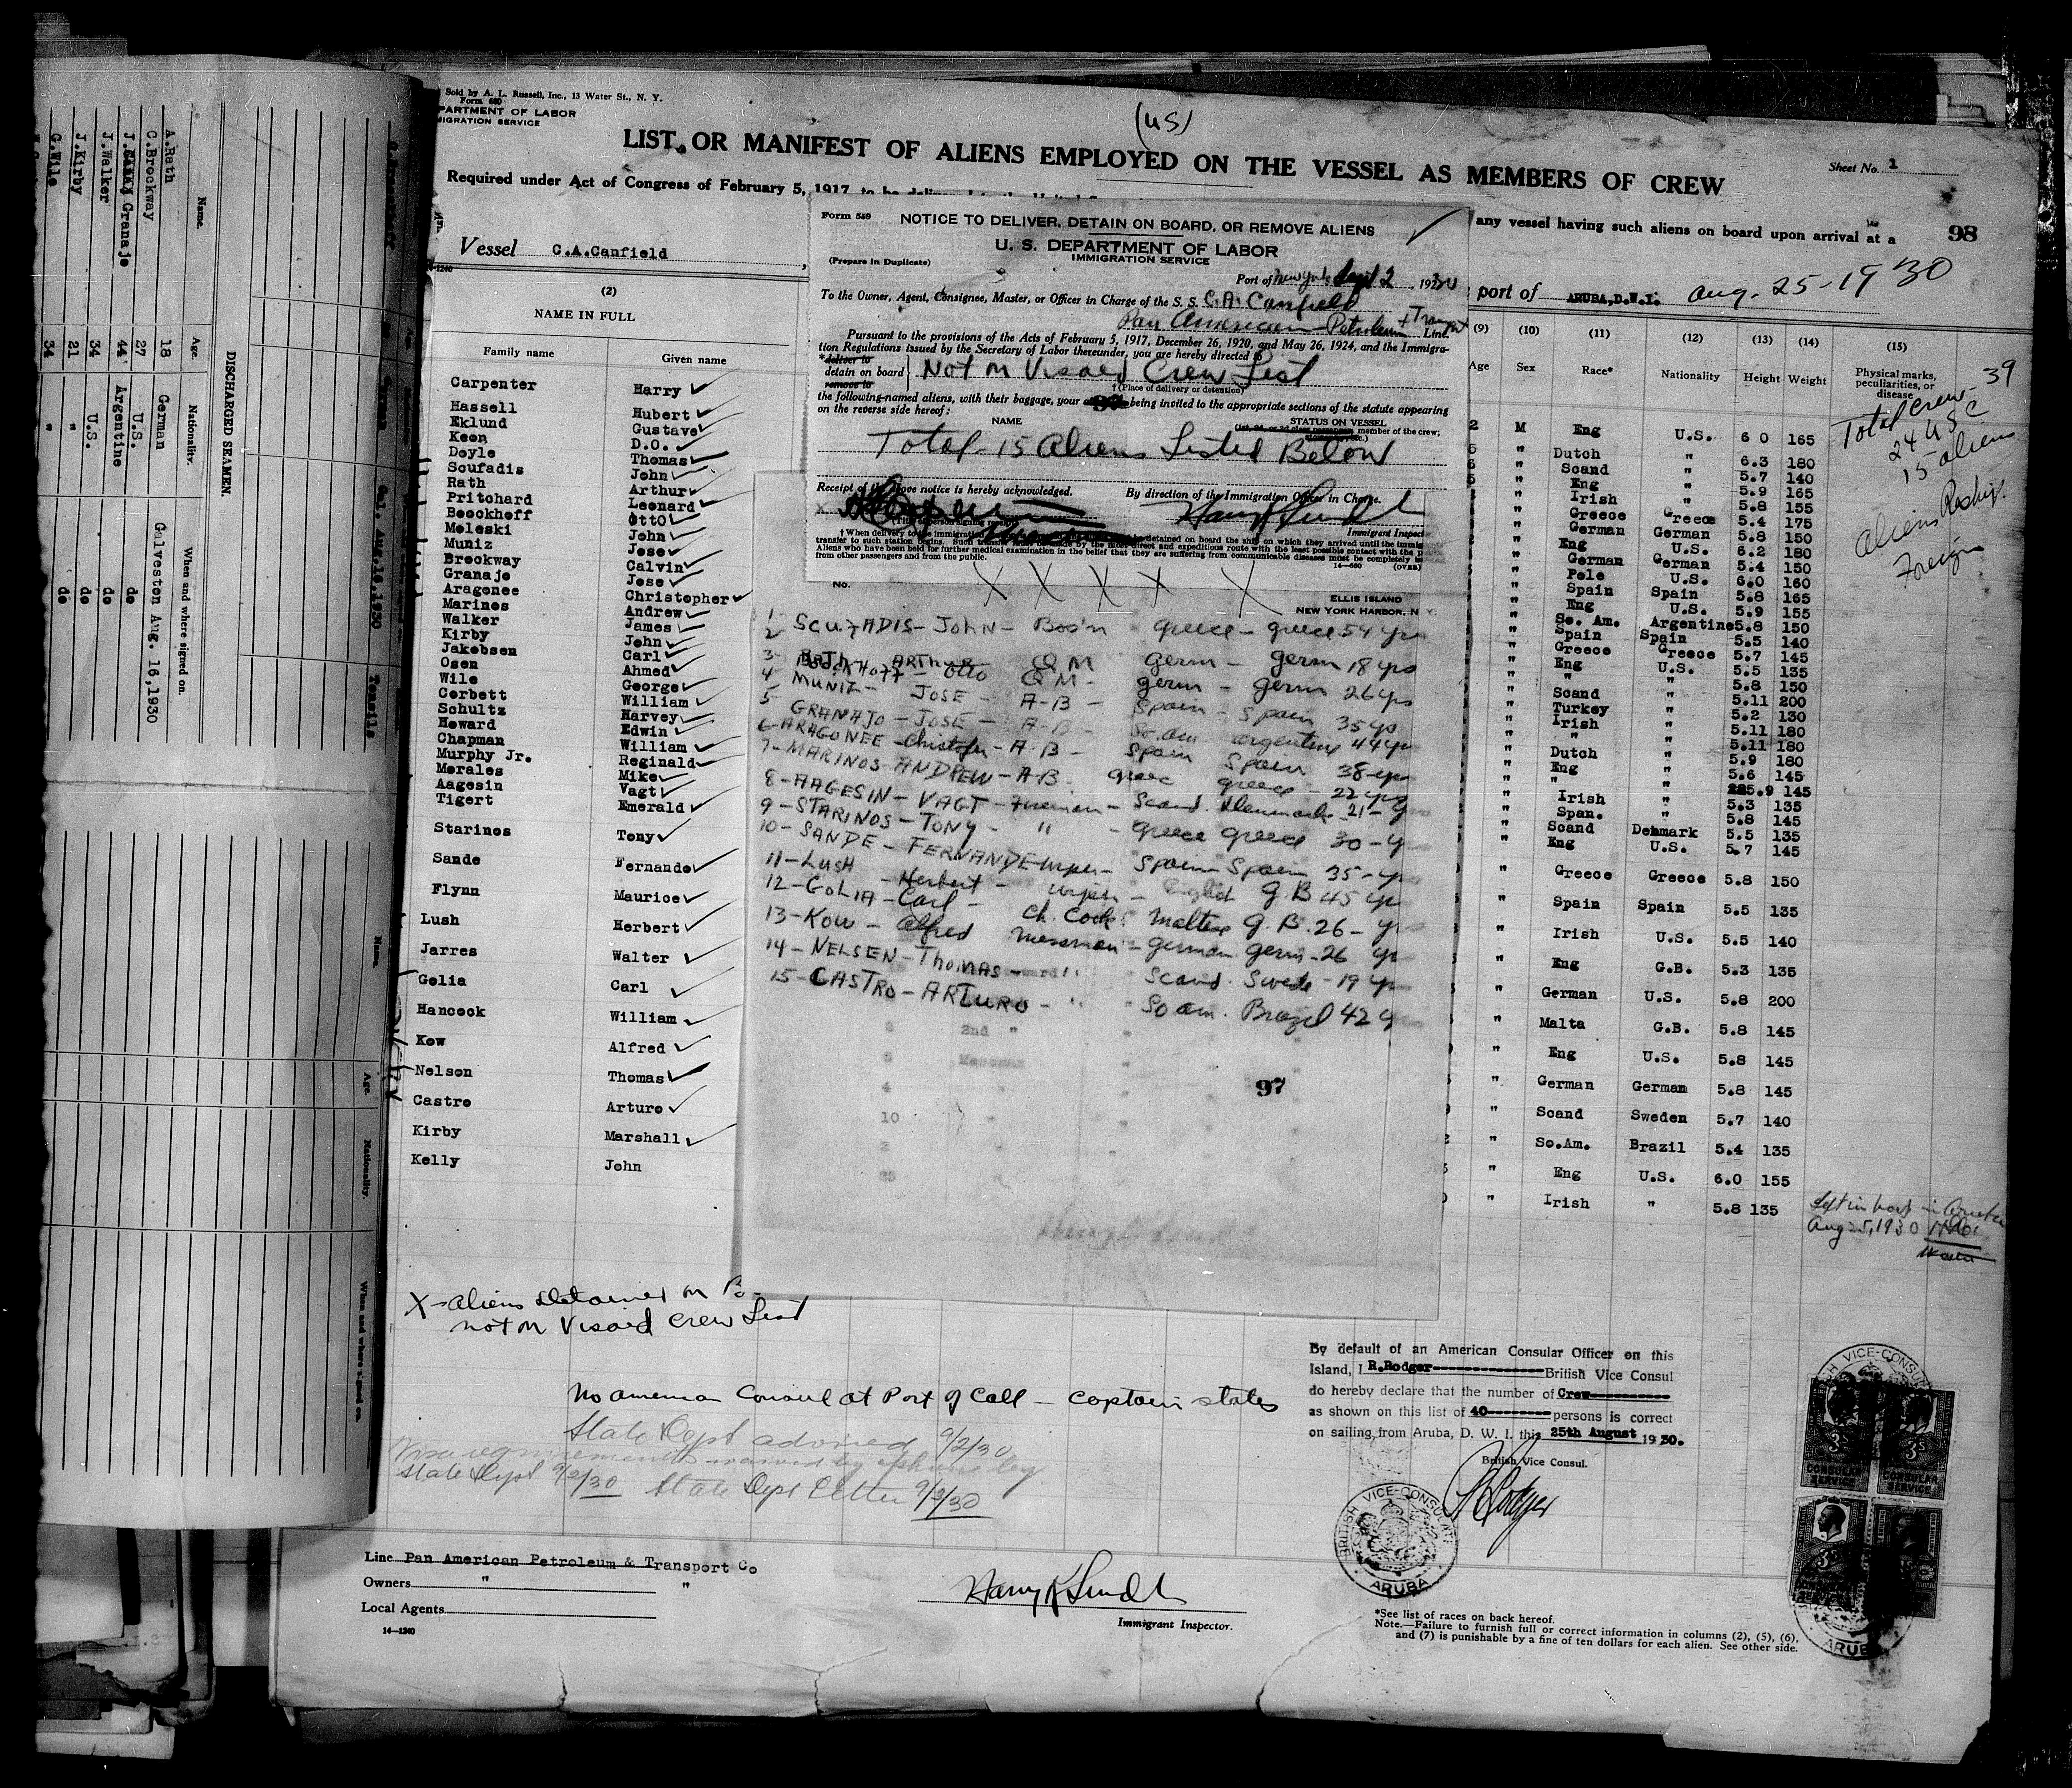 Sold by A. L. Russell, Inc., 13 Water St., N. Y.
Form 680
PARTMENT OF LABOR
MIGRATION SERVICE
(US)
LIST OR MANIFEST OF ALIENS EMPLOYED ON THE VESSEL AS MEMBERS OF CREW
Sheet No. 1
Required under Act of Congress of February 5, 1917, to be delivered to the United S
any vessel having such aliens on board upon arrival at a
98
Vessel C.A.Canfield
port of ARUBA,D.W.I. Aug. 25-1930
(2)
NAME IN FULL
Family name Given name
Carpenter Harry ✓
Hassell Hubert ✓
Eklund Gustave ✓
Keen D.O. ✓
Doyle Thomas ✓
Soufadis John ✓
Rath Arthur ✓
Pritchard Leonard ✓
Boockhoff Otto ✓
Meleski John ✓
Muniz Jose ✓
Brockway Calvin ✓
Granajo Jose ✓
Aragonee Christopher ✓
Marinos Andrew ✓
Walker James ✓
Kirby John ✓
Jakobsen Carl ✓
Osen Ahmed ✓
Wile George ✓
Corbett William ✓
Schultz Harvey ✓
Howard Edwin ✓
Chapman William ✓
Murphy Jr. Reginald ✓
Morales Mike ✓
Aagesin Vagt ✓
Tigert Emerald ✓
Starinos Tony ✓
Sande Fernande ✓
Flynn Maurice ✓
Lush Herbert ✓
Jarres Walter ✓
Golia Carl ✓
Hancock William ✓
Kow Alfred ✓
Nelson Thomas ✓
Castro Arturo ✓
Kirby Marshall ✓
Kelly John
Form 559
NOTICE TO DELIVER, DETAIN ON BOARD, OR REMOVE ALIENS
U. S. DEPARTMENT OF LABOR
IMMIGRATION SERVICE
(Prepare in Duplicate)
Port of New York Sept 2, 1930
To the Owner, Agent, Consignee, Master, or Officer in Charge of the S. S. C.A. Canfield
Pan American Petroleum + Transport Line.
Pursuant to the provisions of the Acts of February 5, 1917, December 26, 1920, and May 26, 1924, and the Immigra-
tion Regulations issued by the Secretary of Labor thereunder, you are hereby directed to
*deliver to
detain on board
remove to
Not on Visaed Crew List
†(Place of delivery or detention)
the following-named aliens, with their baggage, your being invited to the appropriate sections of the statute appearing
on the reverse side hereof:
NAME STATUS ON VESSEL
member of the crew;
Total 15 Aliens Listed Below
Receipt of the above notice is hereby acknowledged.
By direction of the Immigration Officer in Charge.
Immigrant Inspect
†When delivery to the immigrat detained on board the ship on which they arrived until the immig
transfer to such station begins. Such made by the most direct and expeditious route with the least possible contact with the p
Aliens who have been held for further medical examination in the belief that they are suffering from communicable diseases must be completely is
from other passengers and from the public.
14—660 (OVER)
X X X X X
No.
ELLIS ISLAND
NEW YORK HARBOR, N. Y.
1- SCUFADIS- JOHN- Bos'n Greece - Greece 54 yrs
2 RATH - ARTHUR QM Germ - Germ 18 yrs
3- BOOCKHOFF - Otto QM - Germ - Germ 26 yrs
4 MUNIZ - JOSE - A-B - Spain - Spain 35 yrs
5- GRANAJO - JOSE - A-B - So. Am Argentine 44 yrs
6-ARAGONEE Christofer - A-B - Spain Spain 38-yrs
7-MARINOS ANDREW - A-B. Greec Greece - 22 yrs
8-AAGESIN - VAGT - Fireman - Scand. Denmark 21-y
9-STARINOS - TONY - " - Greece Greece 30-y
10-SANDE - FERNANDE-wiper - Spain-Spain 35-y
11-LUSH - Herbert - wiper - English G.B 45 yr
12-GOLIA - Carl - Ch. Cook Maltese G.B. 26- y
13-KOW - Alfred Messman - German Germ - 26 yr
14-NELSEN-THOMAS - " Scand. Swede - 19 y
15-CASTRO-ARTURO - " So am. Brazil 42 y
97
(9) (10) (11) (12) (13) (14) (15)
Age Sex Race* Nationality Height Weight Physical marks, peculiarities, or disease
M Eng U.S. 6 0 165
" Dutch " 6.3 180
" Scand " 5.7 140
" Eng " 5.9 165
" Irish " 5.8 155
" Greece Greece 5.4 175
" German German 5.8 150
" Eng U.S. 6.2 180
" German German 5.4 150
" Pole U.S. 6.0 160
" Spain Spain 5.8 165
" Eng U.S. 5.9 155
" So. Am. Argentine 5.8 150
" Spain Spain 5.5 140
" Greece Greece 5.7 145
" Eng U.S. 5.5 135
" " " 5.8 150
" Scand " 5.11 200
" Turkey " 5.2 130
" Irish " 5.11 180
" " " 5.11 180
" Dutch " 5.9 180
" Eng " 5.6 145
" " " 5.9 145
" Irish " 5.3 135
" Span. " 5.8 145
" Scand Denmark 5.5 135
" Eng U.S. 5.7 145
" Greece Greece 5.8 150
" Spain Spain 5.5 135
" Irish U.S. 5.5 140
" Eng G.B. 5.3 135
" German U.S. 5.8 200
" Malta G.B. 5.8 145
" Eng U.S. 5.8 145
" German German 5.8 145
" Scand Sweden 5.7 140
" So.Am. Brazil 5.4 135
" Eng U.S. 6.0 155
" Irish " 5.8 135
Total Crew - 39
24 USC
15 aliens
Aliens Reship.
Foreign
Left in hosp in Aruba
Aug 25, 1930
X-Aliens Detained on Bo.
not on Visaed Crew List
No American Consul at Port of Call - Captain states
State Dept advised 9/2/30
Visa requirements waived by phone by
State Dept 9/2/30 State Dept Letter 9/3/30
By default of an American Consular Officer on this
Island, I R.Rodger British Vice Consul
do hereby declare that the number of Crew
as shown on this list of 40 persons is correct
on sailing from Aruba, D. W. I. this 25th August 1930.
British Vice Consul.
BRITISH VICE-CONSULATE
ARUBA
3S 3S
CONSULAR SERVICE
CONSULAR SERVICE
3S
ARUBA
Line Pan American Petroleum & Transport Co
Owners " "
Local Agents
14—1240
Immigrant Inspector.
*See list of races on back hereof.
Note.—Failure to furnish full or correct information in columns (2), (5), (6),
and (7) is punishable by a fine of ten dollars for each alien. See other side.
DISCHARGED SEAMEN.
Name. Age. Nationality. When and where signed on.
A.Rath 18 German Galveston Aug. 16,1930
C.Brockway 27 U.S. do
J. Granajo 44 Argentine do
J.Walker 34 U.S. do
J.Kirby 21 " do
G.Wile 34 " do
Name. Age. Nationality. When and where signed on.